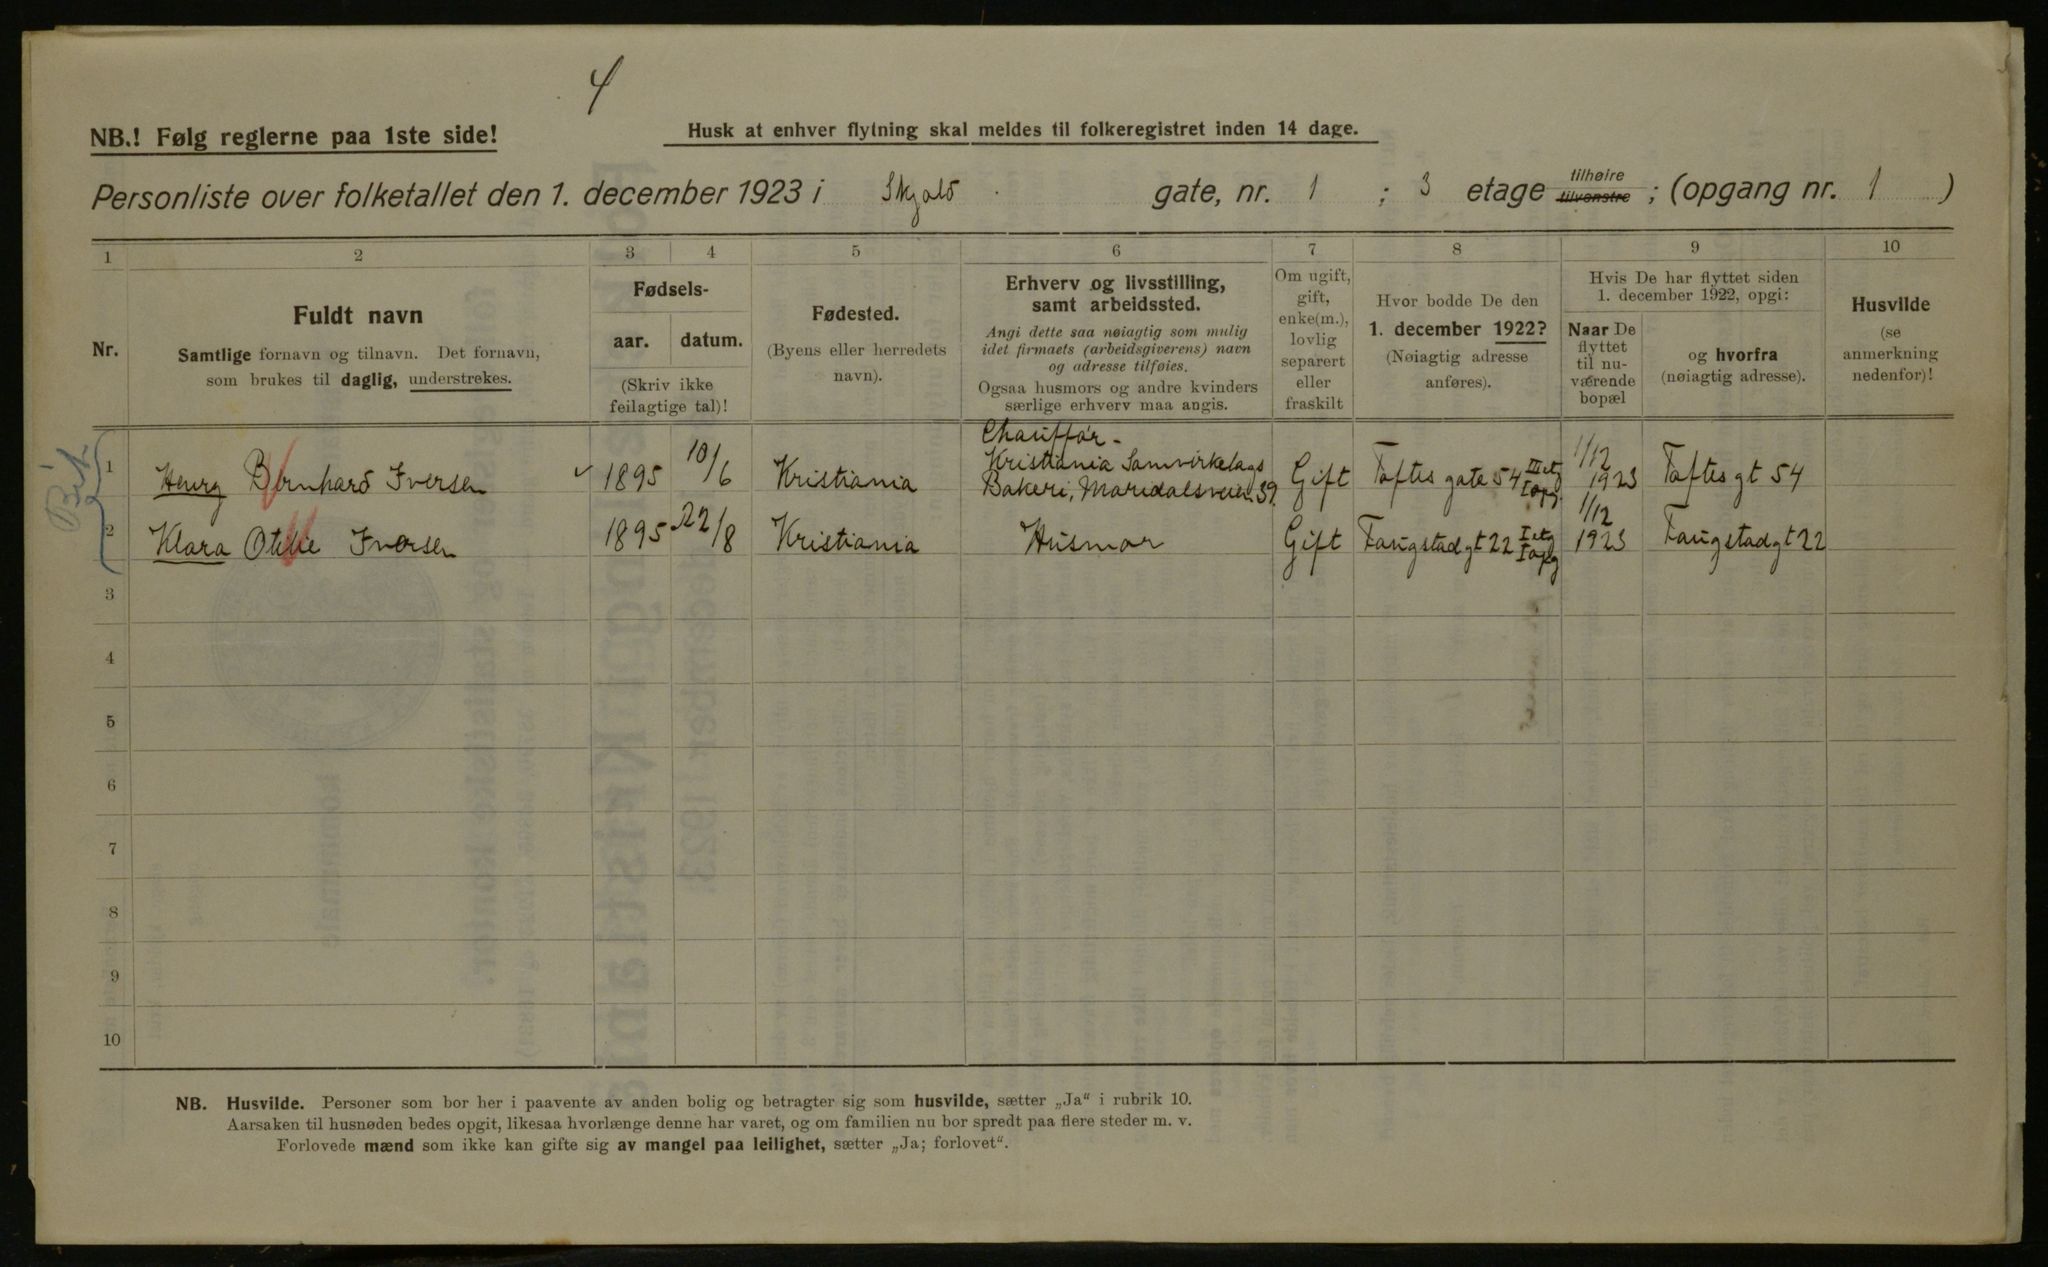 4
NB.! Følg reglerne paa 1ste side!
Husk at enhver flytning skal meldes til folkeregistret inden 14 dage.
Personliste over folketallet den 1. december 1923 i Skjold gate, nr. 1 ; 3 etage tilhøire tilvenstre ; (opgang nr. 1 )
1 2 3 4 5 6 7 8 9 10
Nr.
Fuldt navn
Samtlige fornavn og tilnavn. Det fornavn,
som brukes til daglig, understrekes.
Fødsels-
aar. datum.
(Skriv ikke
feilagtige tal)!
Fødested.
(Byens eller herredets
navn).
Erhverv og livsstilling,
samt arbeidssted.
Angi dette saa nøiagtig som mulig
idet firmaets (arbeidsgiverens) navn
og adresse tilføies.
Ogsaa husmors og andre kvinders
særlige erhverv maa angis.
Om ugift,
gift,
enke(m.),
lovlig
separert
eller
fraskilt
Hvor bodde De den
1. december 1922?
(Nøiagtig adresse
anføres).
Hvis De har flyttet siden
1. december 1922, opgi:
Naar De
flyttet
til nu-
værende
bopæl
og hvorfra
(nøiagtig adresse).
Husvilde
(se
anmerkning
nedenfor)!
1 Henry Bernhard Iversen 1895 10/6 Kristiania Chauffør- Kristiania Samvirkelags Bakeri, Maridalsveien 39. Gift Toftes gate 54 III etg I opg. 1/12 1923 Toftes gt 54
2 Klara Otilie Iversen 1895 22/8 Kristiania Husmor Gift Faugstadgt 22 I etg I opg 1/12 1923 Faugstadgt 22
3
4
5
6
7
8
9
10
NB. Husvilde. Personer som bor her i paavente av anden bolig og betragter sig som husvilde, sætter „Ja“ i rubrik 10.
Aarsaken til husnøden bedes opgit, likesaa hvorlænge denne har varet, og om familien nu bor spredt paa flere steder m. v.
Forlovede mænd som ikke kan gifte sig av mangel paa leilighet, sætter „Ja; forlovet“.